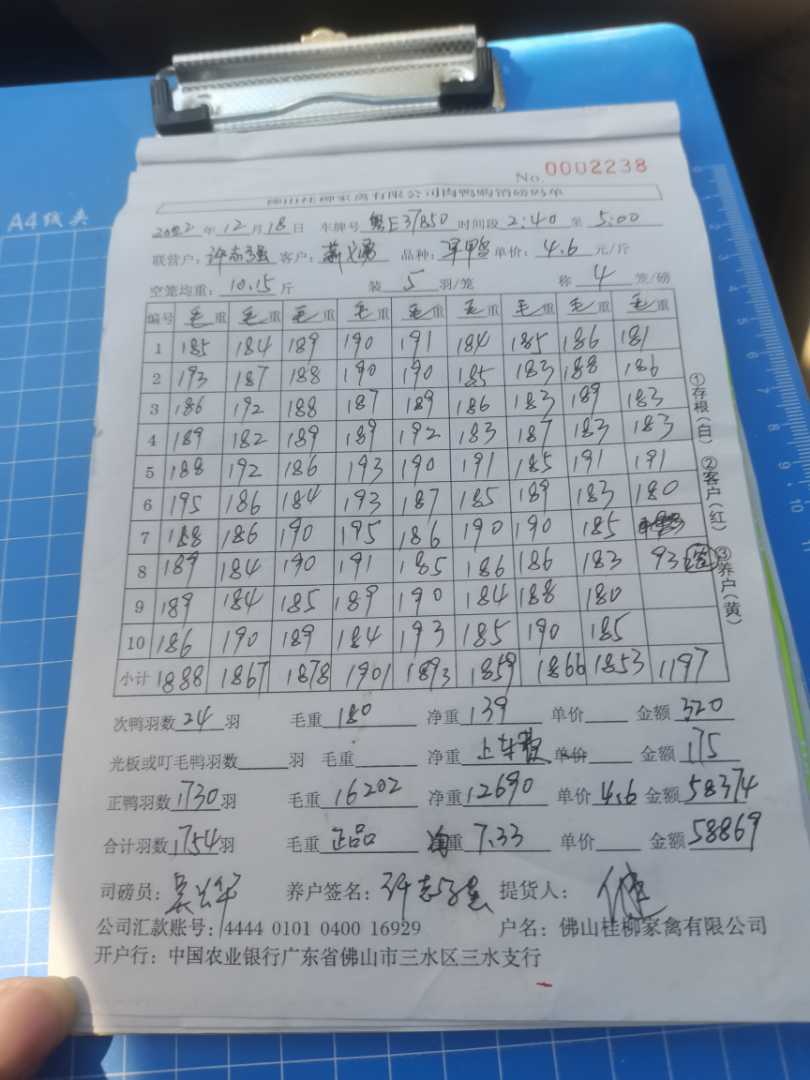 A4线夹
No. 0002238
佛山桂柳家禽有限公司肉鸭购销磅码单
2022 年 12 月 18 日 车牌号 粤E37B50 时间段 2:40 至 5:00
联营户: 许志强 客户: 品种: 单价: 4.6 元/斤
空笼均重: 10.15 斤 装 5 羽/笼 称 4 笼/磅
编号 毛重 毛重 毛重 毛重 毛重 毛重 毛重 毛重 毛重
1 185 184 189 190 191 184 185 186 181
2 193 187 188 190 190 185 183 188 186
3 186 192 188 187 189 186 183 189 183
4 189 182 189 189 192 183 187 183 183
5 188 192 186 193 190 191 185 191 191
6 195 186 184 193 187 185 189 183 180
7 188 186 190 195 186 190 190 185
8 189 184 190 191 185 186 186 183 93
9 189 184 185 189 190 184 188 180
10 186 190 189 184 193 185 190 185
小计 1888 1867 1878 1901 1893 1859 1866 1853 1197
①存根(白) ②客户(红) ③养户(黄)
次鸭羽数 24 羽 毛重 180 净重 139 单价 金额 320
光板或叮毛鸭羽数 羽 毛重 净重 上车费 单价 金额 175
正鸭羽数 1730 羽 毛重 16202 净重 12690 单价 4.6 金额 58374
合计羽数 1754 羽 毛重 正品 净重 7.33 单价 金额 58869
司磅员: 养户签名: 许志强 提货人: 健
公司汇款账号: 4444 0101 0400 16929 户名: 佛山桂柳家禽有限公司
开户行: 中国农业银行广东省佛山市三水区三水支行